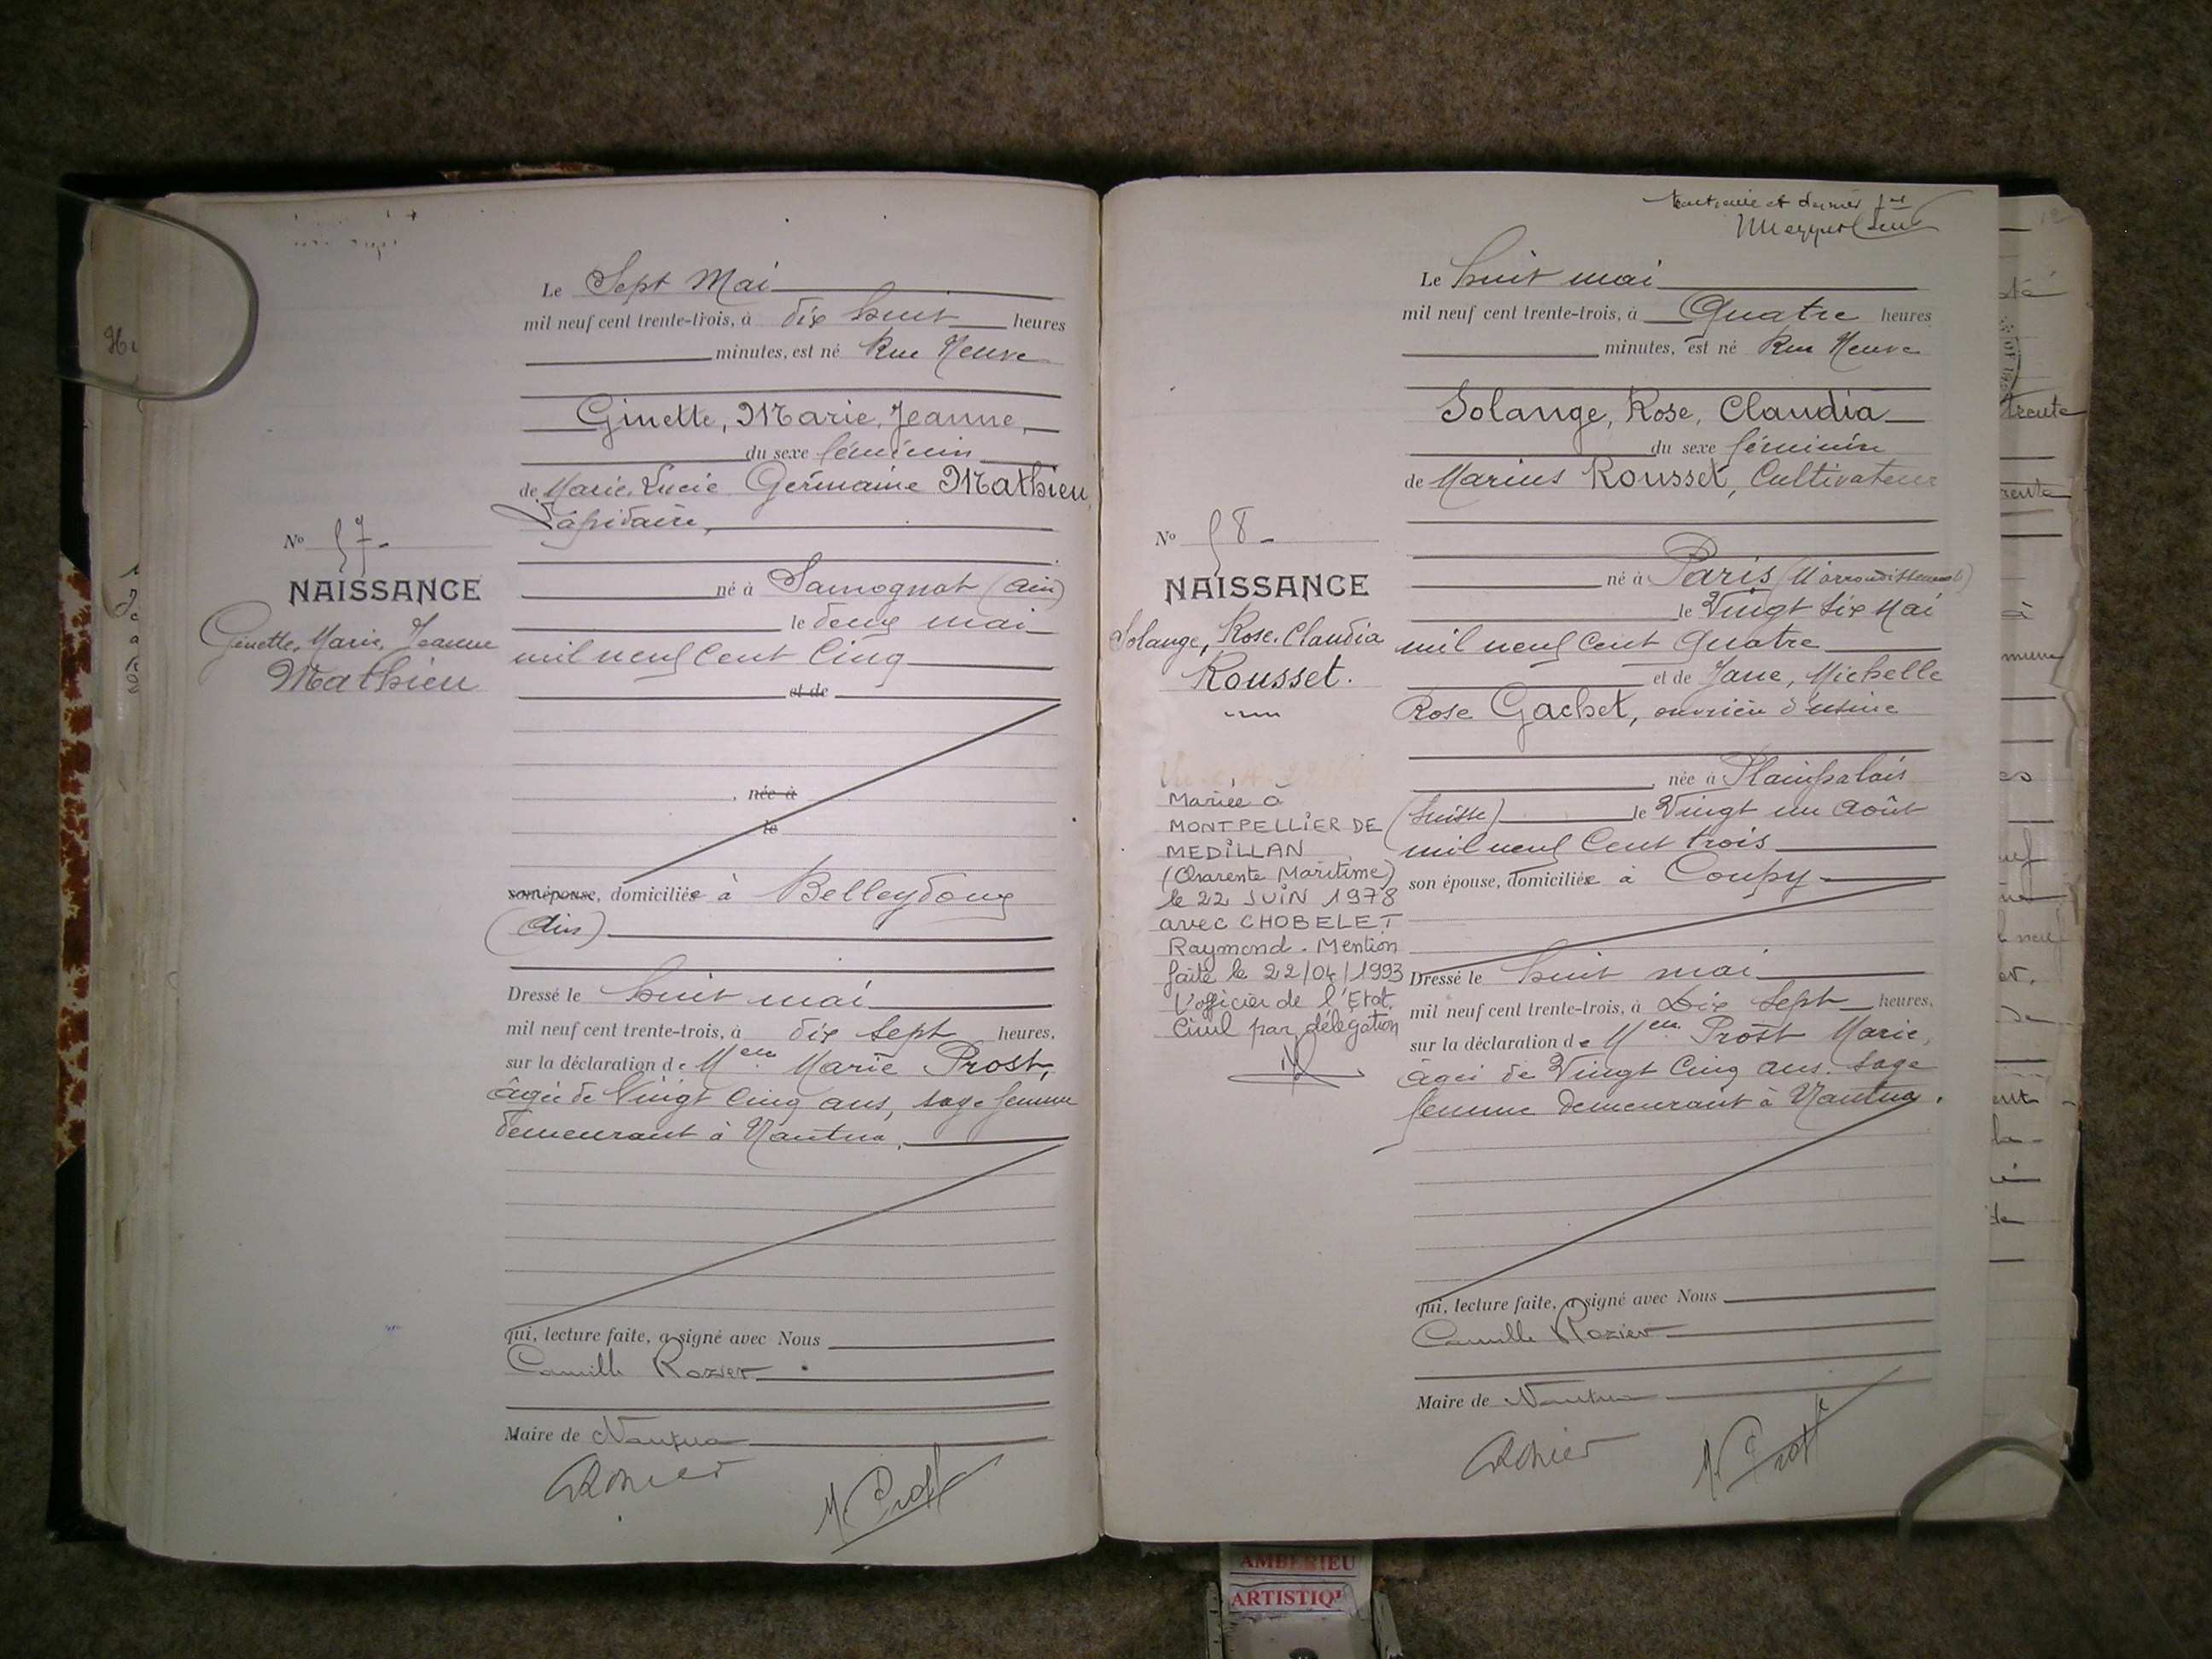 Le Sept Mai
mil neuf cent trente-trois, à dix huit heures
minutes, est né Rue Neuve
Ginette, Marie, Jeanne,
du sexe féminin
de Marie, Lucie Germaine Mathieu,
Lapidaire,
né à Samognat (Ain)
le deux mai
mil neuf cent cinq
et de
, née à
le
son épouse, domiciliée à Belleydoux
(Ain)
Dressé le huit mai
mil neuf cent trente-trois, à dix sept heures,
sur la déclaration de Melle Marie Prost,
âgée de Vingt cinq ans, sage femme
demeurant à Nantua.
qui, lecture faite, a signé avec Nous
Camille Rozier
Maire de Nantua
Rozier M. Prost
No 57-
NAISSANCE
Ginette, Marie, Jeanne
Mathieu
et dernier
Le huit mai
mil neuf cent trente-trois, à Quatre heures
minutes, est né Rue Neuve
Solange, Rose, Claudia
du sexe féminin
de Marius Rousset, Cultivateur
né à Paris (11 arrondissement)
le Vingt six Mai
mil neuf cent quatre
et de Jane, Michelle
Rose Gachet, ouvrière d'usine
, née à Plainpalais
(Suisse) le Vingt un Août
mil neuf cent trois
son épouse, domiciliée à Coupy
Dressé le huit mai
mil neuf cent trente-trois, à Dix Sept heures,
sur la déclaration de Melle Prost Marie,
âgée de Vingt cinq ans. sage
femme demeurant à Nantua.
qui, lecture faite, a signé avec Nous
Camille Rozier
Maire de Nantua
Rozier M. Prost
No 58-
NAISSANCE
Solange, Rose, Claudia
Rousset.
Mariée à
MONTPELLIER DE
MEDILLAN
(Charente Maritime)
le 22 JUIN 1978
avec CHOBELET
Raymond. Mention
faite le 22/04/1993
L'officier de l'Etat
Civil par délégation
AMBERIEU
ARTISTIQ